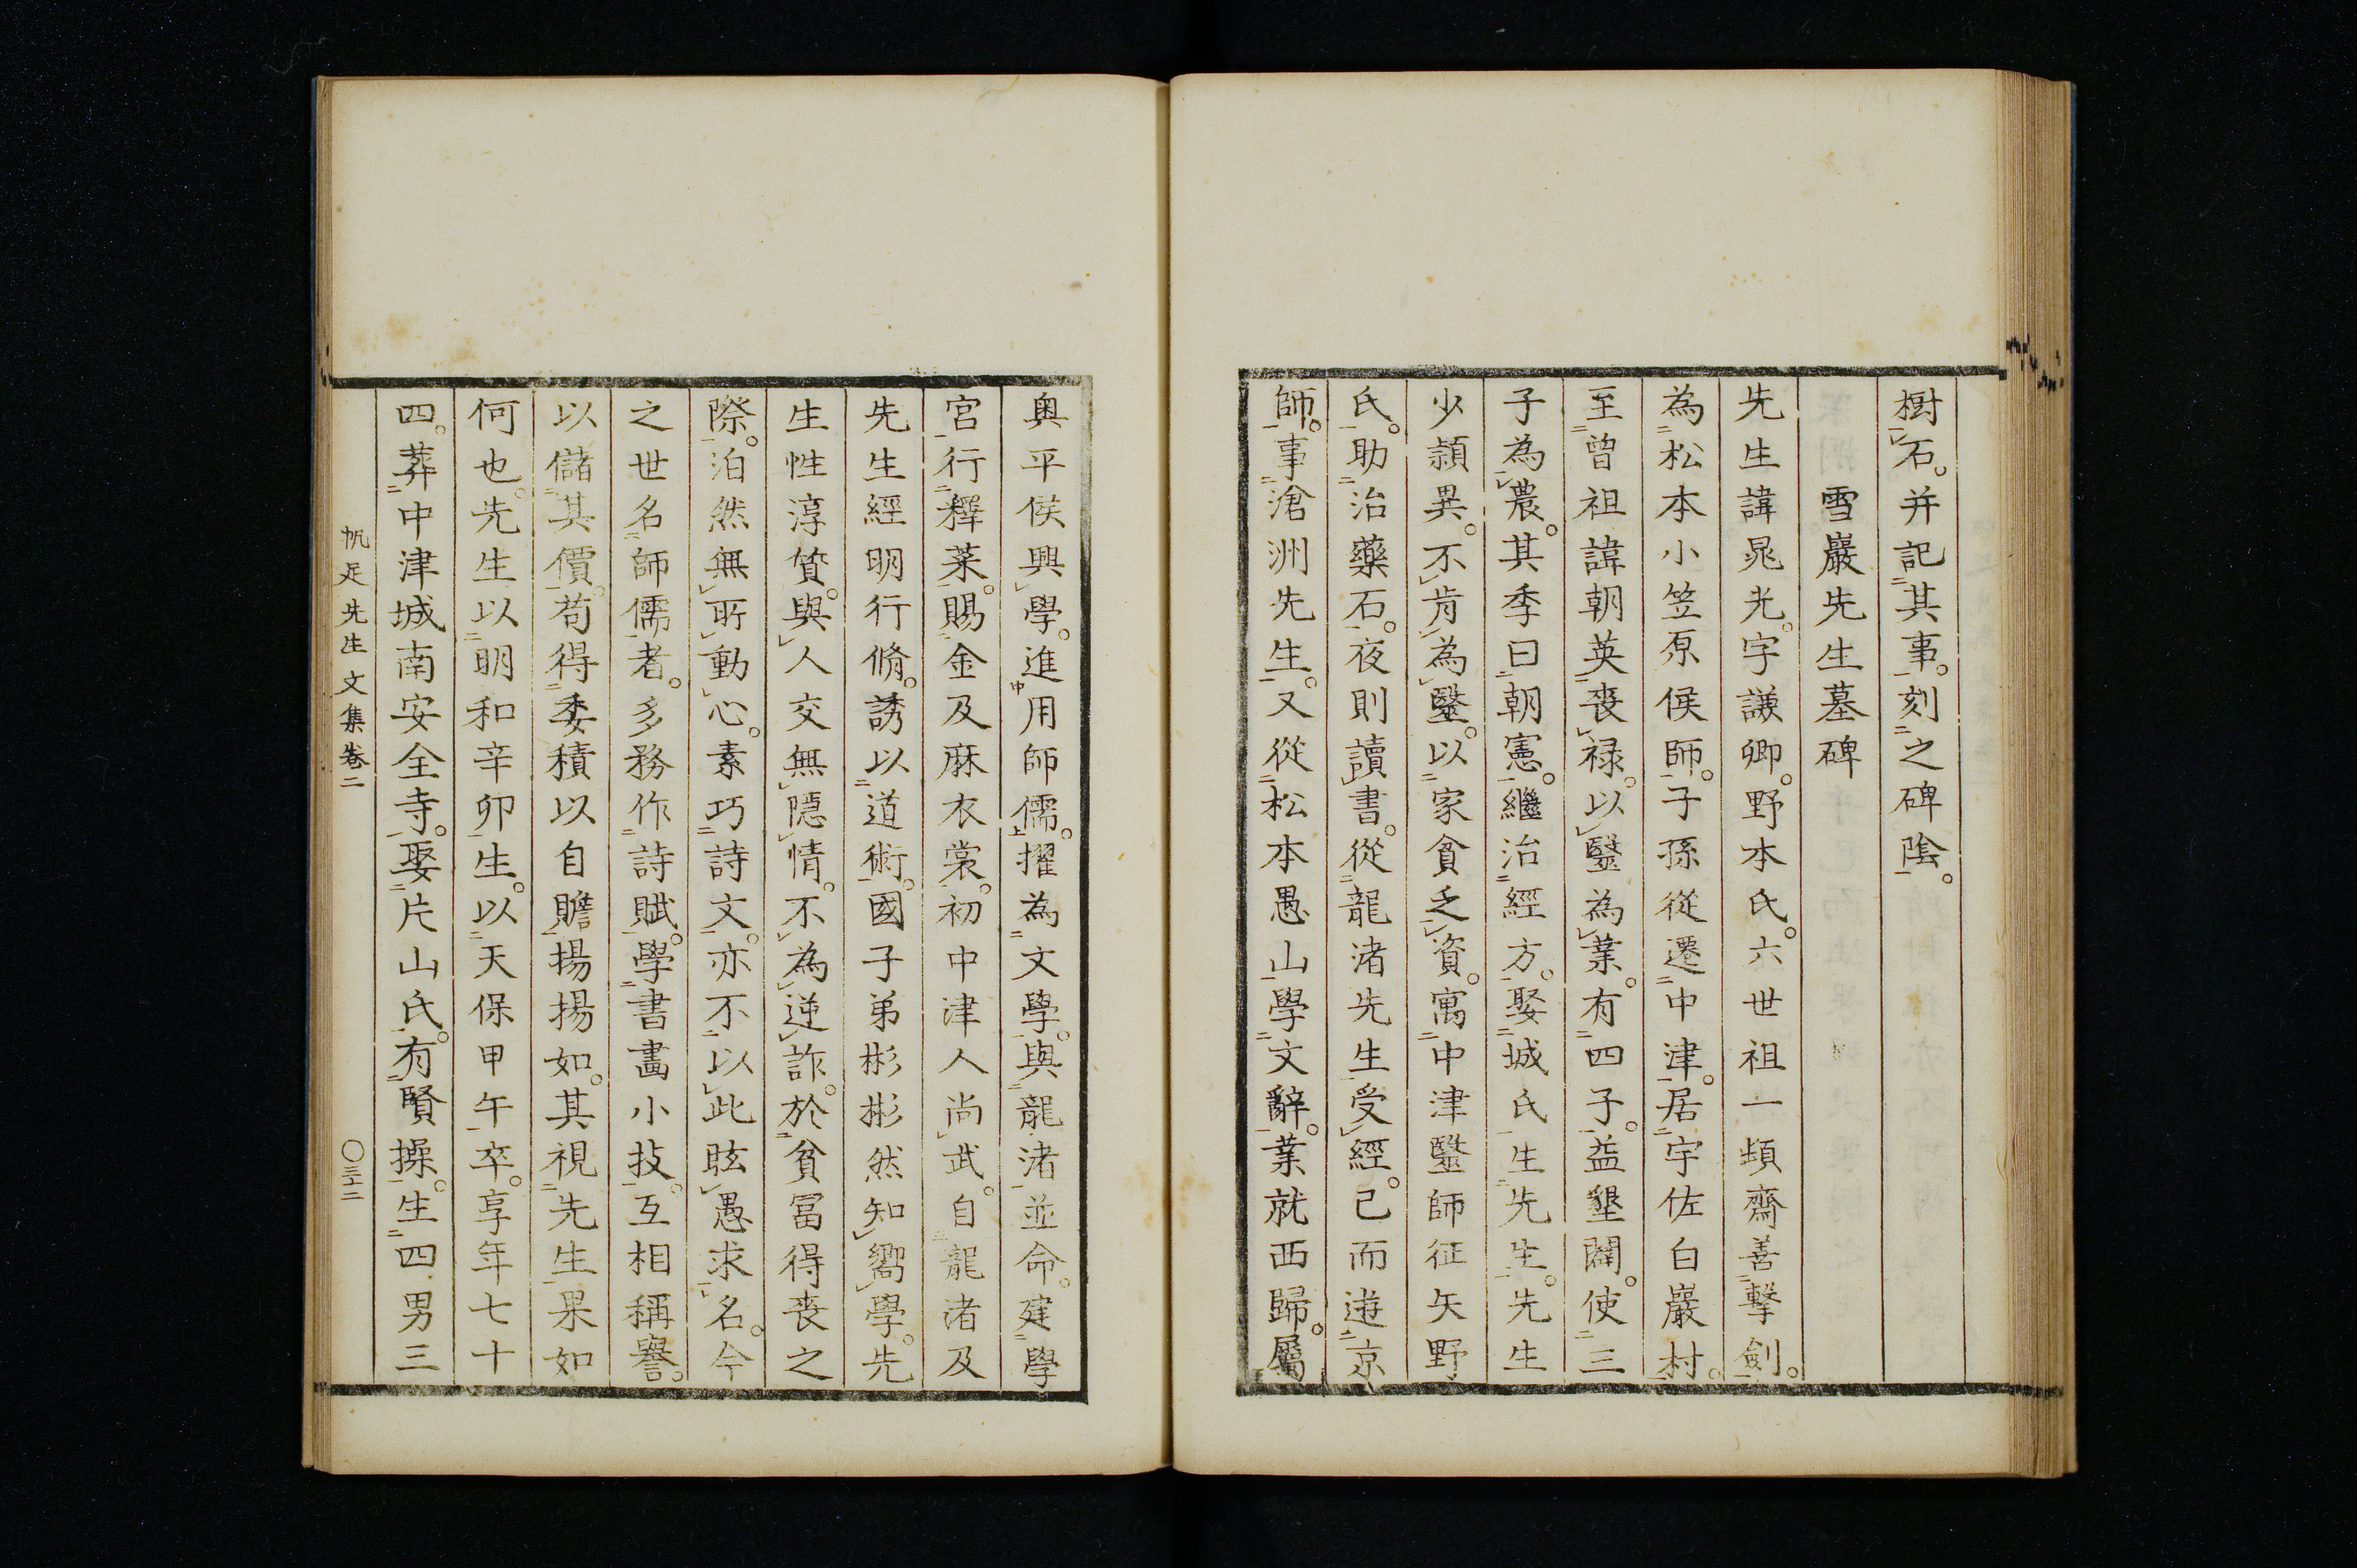 樹石。并記其事。刻之碑陰。
雪巖先生墓碑
先生諱晁光。字謙卿。野本氏。六世祖一䫌齋善擊劍。
為松本小笠原侯師。子孫從遷中津。居宇佐白巖村。
至曾祖諱朝英喪禄。以醫為業。有四子。益墾闢。使三
子為農。其季曰朝憲。繼治經方。娶城氏生先生。先生
少頴異。不肯為醫。以家貧乏資。寓中津醫師征矢野
氏。助治藥石。夜則讀書。從龍渚先生受經。已而遊京
師。事滄洲先生。又從松本愚山學文辭。業就西歸。屬
奥平侯興學。進用師儒。擢為文學。與龍渚並命。建學
宮行釋菜。賜金及麻衣裳。初中津人尚武。自龍渚及
先生經明行脩。誘以道術。國子弟彬彬然知嚮學。先
生性淳質。與人交無隱情。不為逆詐。於貧冨得喪之
際。泊然無所動心。素巧詩文。亦不以此眩愚求名。今
之世名師儒者。多務作詩賦。學書畫小技。互相稱譽。
以儲其價。苟得委積以自贍揚揚如。其視先生果如
何也。先生以明和辛卯生。以天保甲午卒。享年七十
四。葬中津城南安全寺。娶片山氏。有賢操。生四男三
帆足先生文集卷二
〇三十二